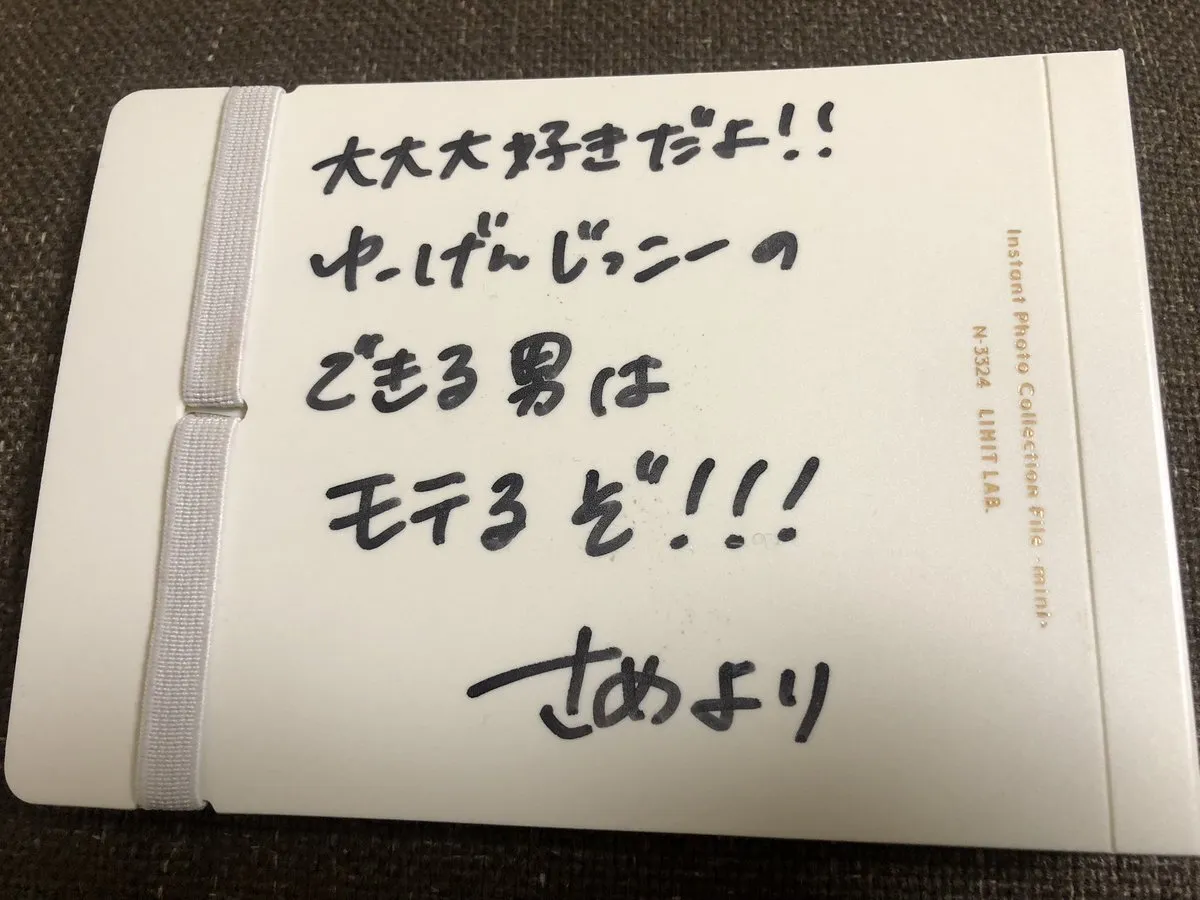 大大大好きだよ!!
ゆーげんじっこーの
できる男は
モテるぞ!!!
さめより
Instant Photo Collection File -mini-
N-3324 LIMIT LAB.